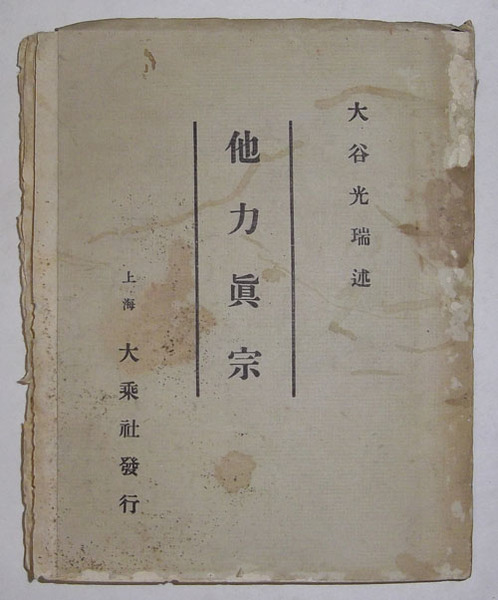 大谷光瑞述
他力眞宗
上海 大乘社發行